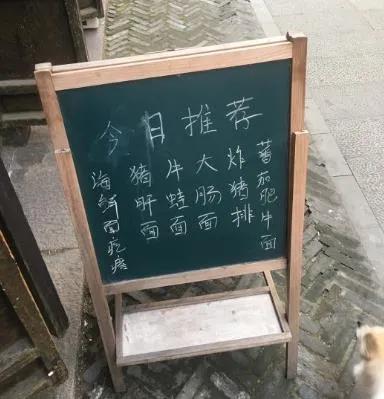 今日推荐
蕃茄肥牛面
炸猪排
大肠面
牛蛙面
猪肝面
海鲜面疙瘩